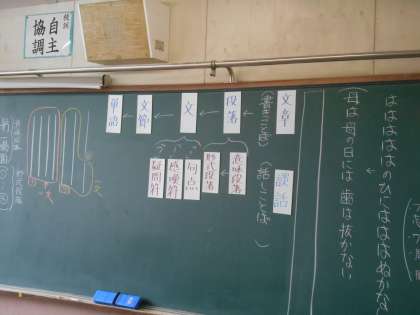 校訓
自主
協調
はははははのひにはははぬかない
(母は母の日には 歯は抜かない)
文章
(書きことば)
談話
(話しことば)
段落
意味段落
形式段落
文
句点
感嘆符
疑問符
文節
単語
形式段落